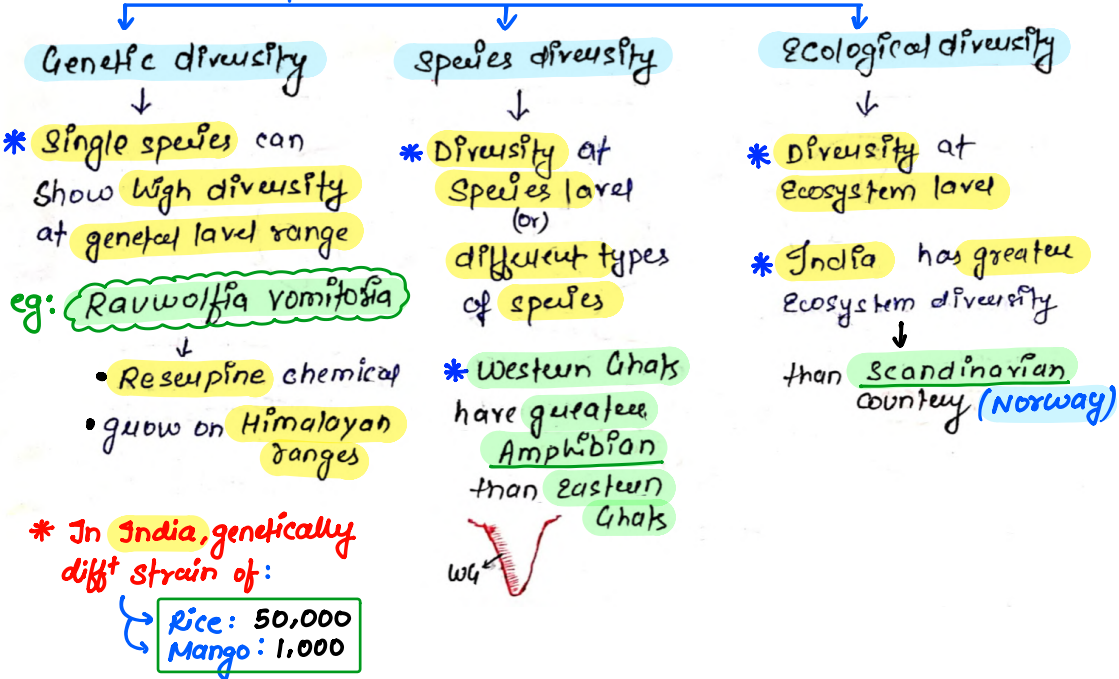 Genetic diversity
* Single species can
show high diversity
at genetcal lavel range
eg: Rauwolfia vomitoria
• Reserpine chemical
• grow on Himalayan
ranges
* In India, genetically
diff^t strain of:
Rice: 50,000
Mango: 1,000
Species diversity
* Diversity at
Species lavel
(or)
different types
of species
* Western Ghats
have greater
Amphibian
than Eastern
Ghats
WG
Ecological diversity
* Diversity at
Ecosystem lavel
* India has greater
Ecosystem diversity
than Scandinavian
country (Norway)